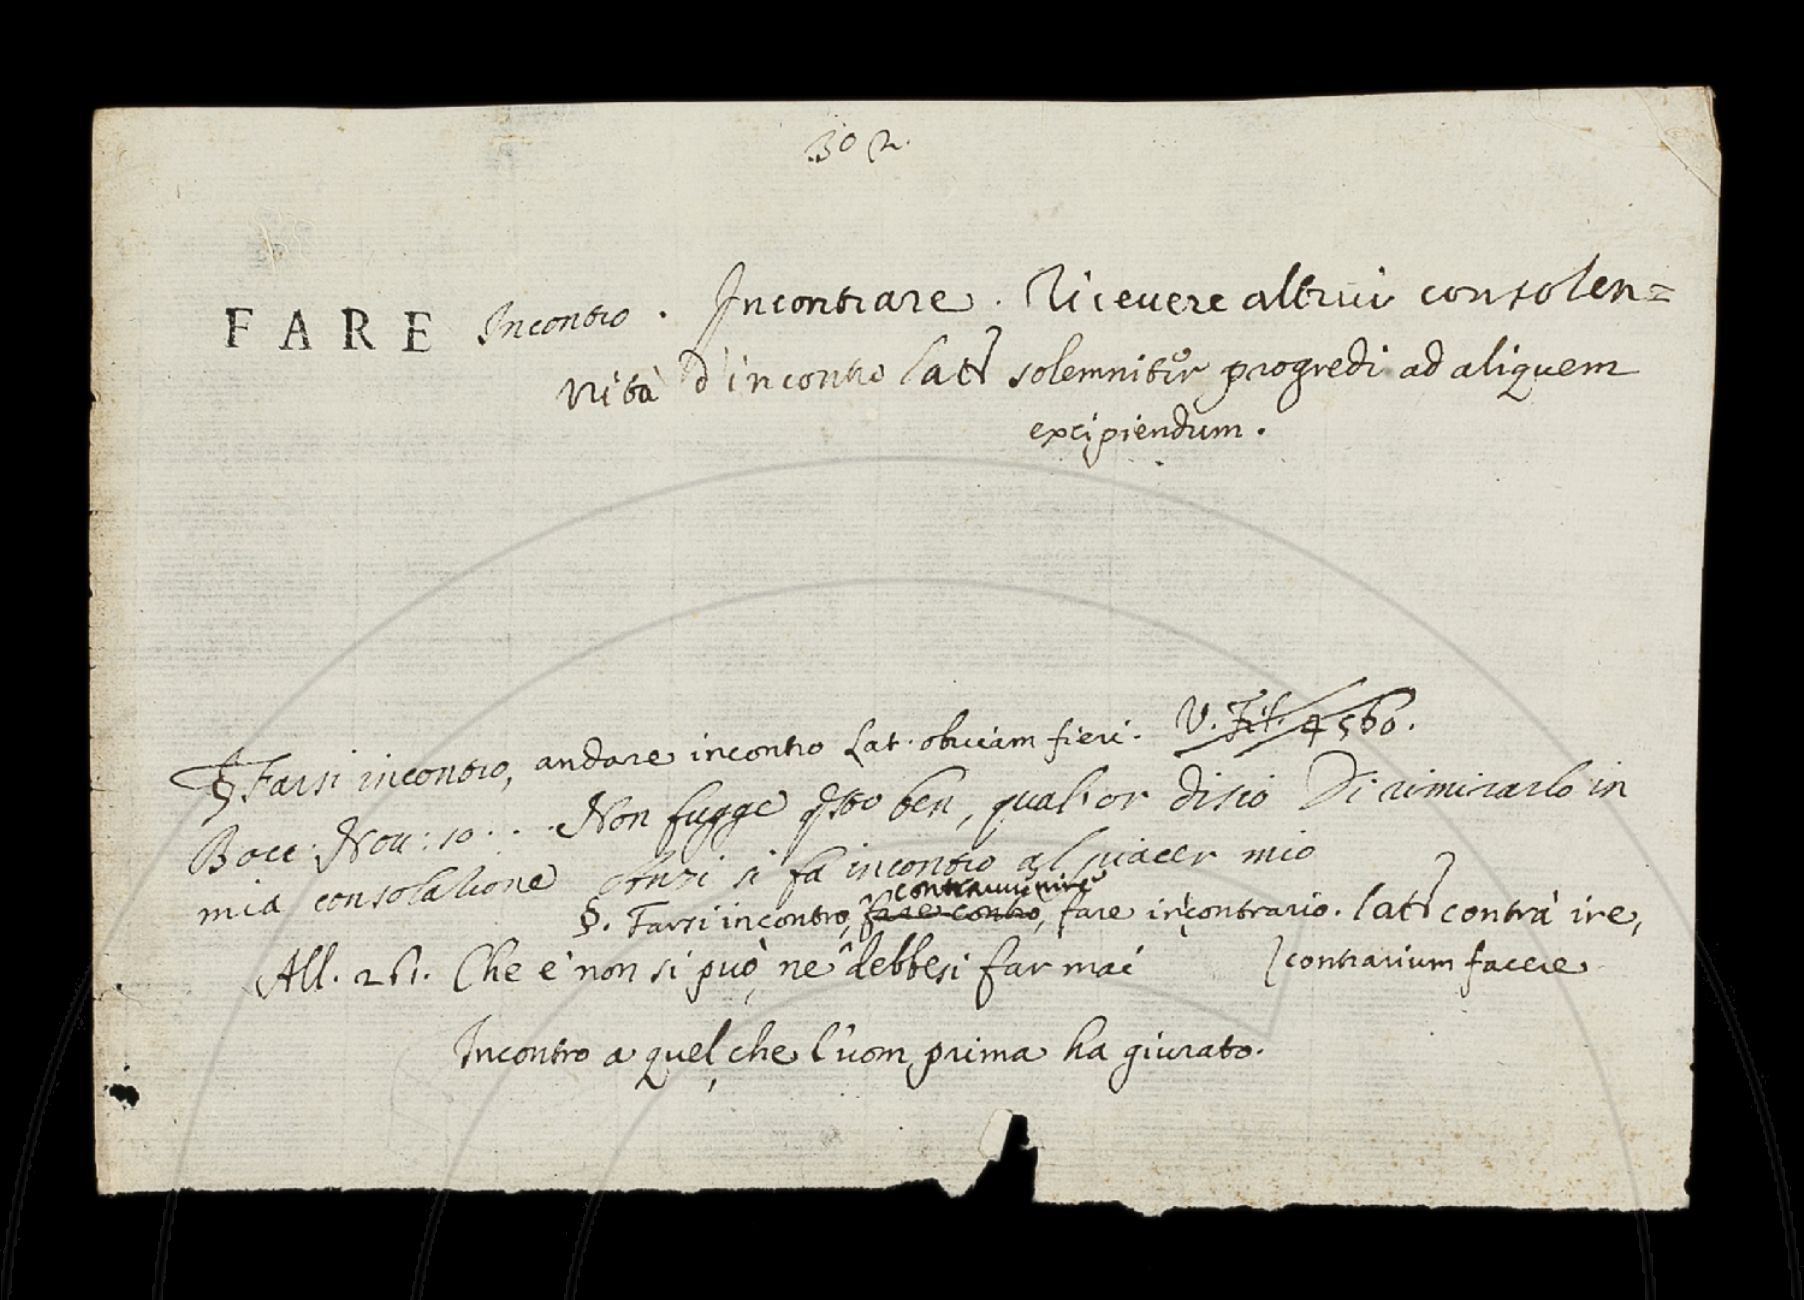 302.
FARE Incontro. Incontrare. Riceuere altrui con solen=
nità d'incontro lat solemnitur progredi ad aliquem
excipiendum.
§ Farsi incontro, andare incontro Lat. obuiam fieri. V. Fil. 4560.
Bocc. Nou: 10... Non fugge qsto ben, qual'or disio Di rimirarlo in
mia consolatione anzi si fà incontro al piacer mio
contrauuenire
§. Farsi incontro, fare contro, fare in contrario. lat contrà ire,
All. 261. Che e' non si può, ne debbesi far mai contrarium facere
Incontro a quel, che l'uom prima ha giurato.